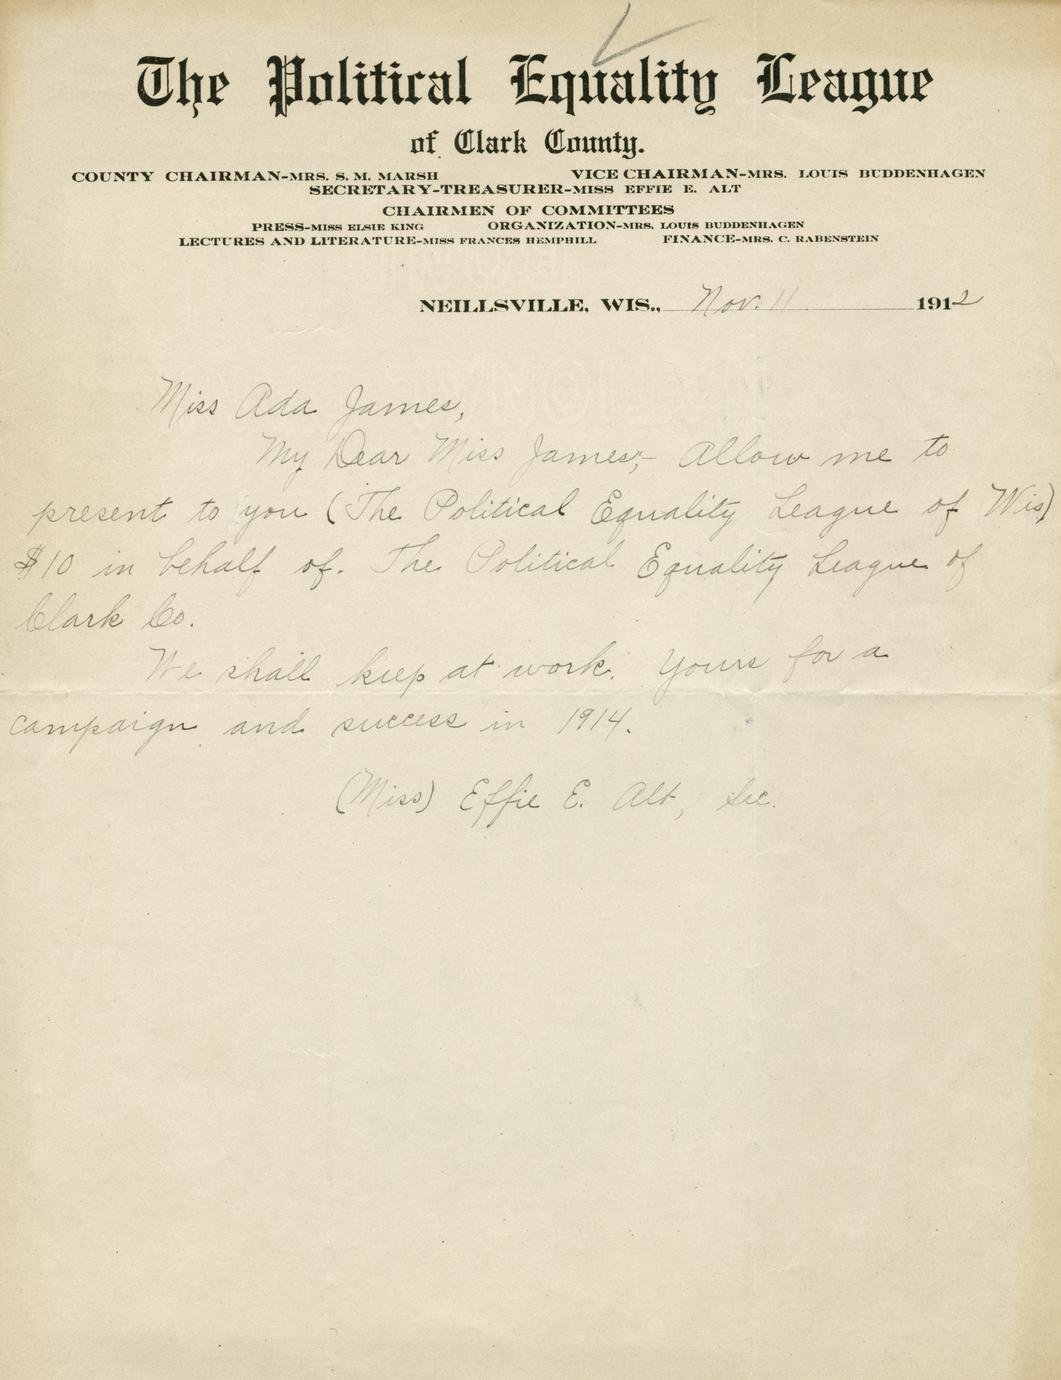 The Political Equality League
of Clark County.
COUNTY CHAIRMAN-MRS. S. M. MARSH VICE CHAIRMAN-MRS. LOUIS BUDDENHAGEN
SECRETARY-TREASURER-MISS EFFIE E. ALT
CHAIRMEN OF COMMITTEES
PRESS-MISS ELSIE KING ORGANIZATION-MRS. LOUIS BUDDENHAGEN
LECTURES AND LITERATURE-MISS FRANCES HEMPHILL FINANCE-MRS. C. RABENSTEIN
NEILLSVILLE, WIS., Nov. 11 1912
Miss Ada James,
My Dear Miss James;- Allow me to
present to you (The Political Equality League of Wis)
$10 in behalf of. The Political Equality League of
Clark Co.
We shall keep at work. Yours for a
campaign and success in 1914.
(Miss) Effie E. Alt, Sec.